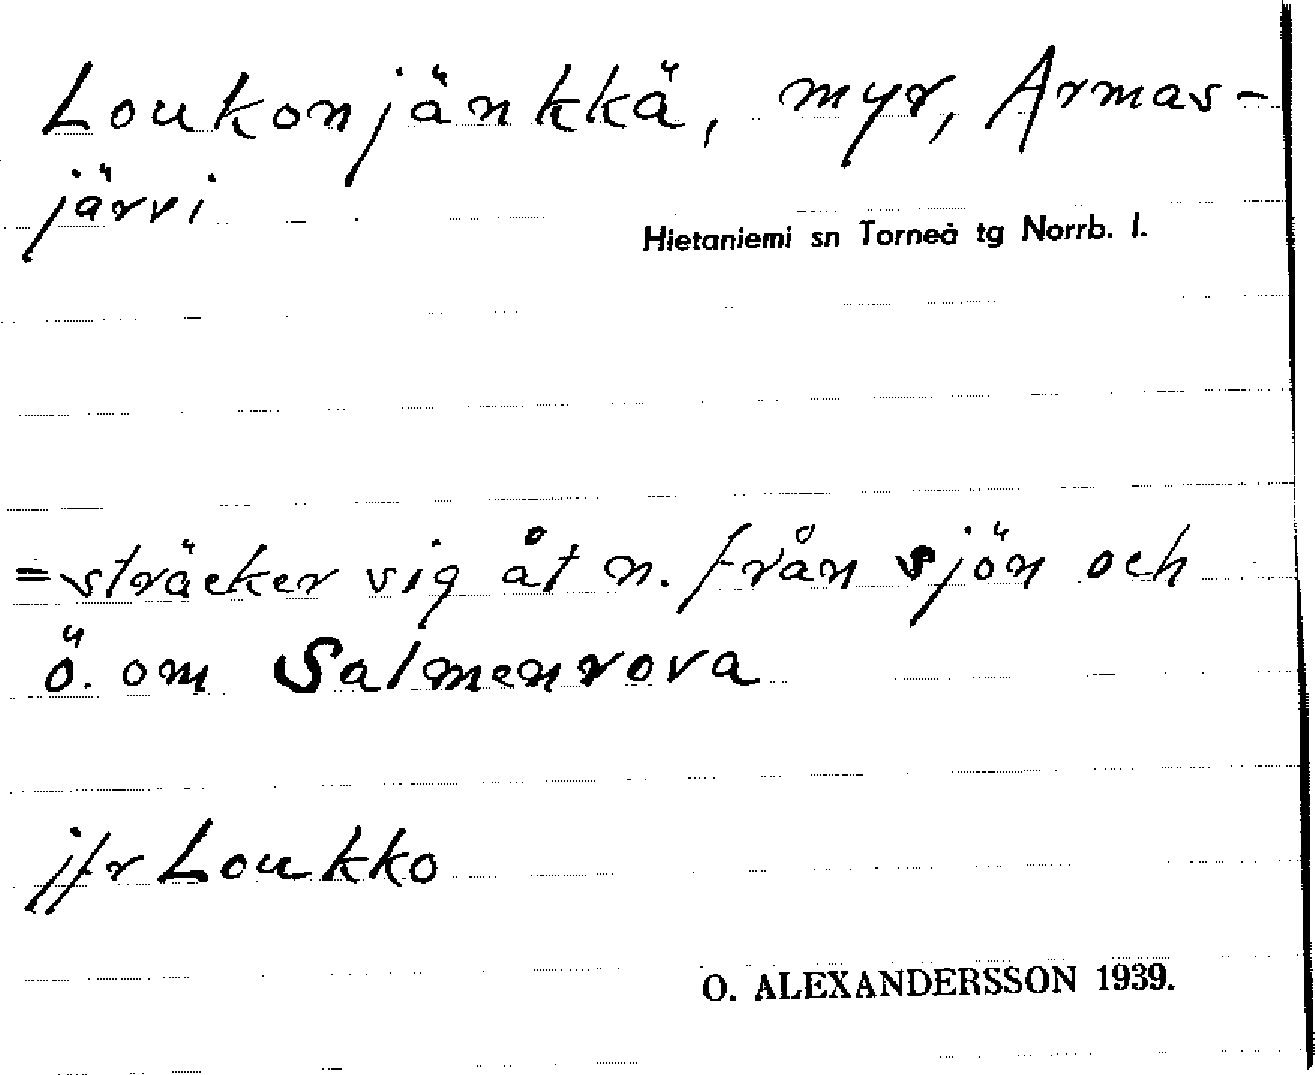 Loukonjänkkä, myr, Armas-
järvi
Hietaniemi sn Torneå tg Norrb. l.
= sträcker sig åt n. från sjön och
ö. om Salmenrova
jfr Loukko
O. ALEXANDERSSON 1939.